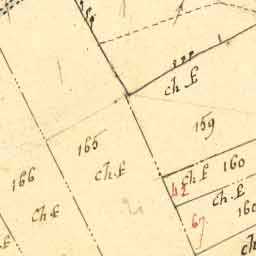 ch £
159
165
ch £
160
ch £
166
42
ch £
ch £
160
67
ch